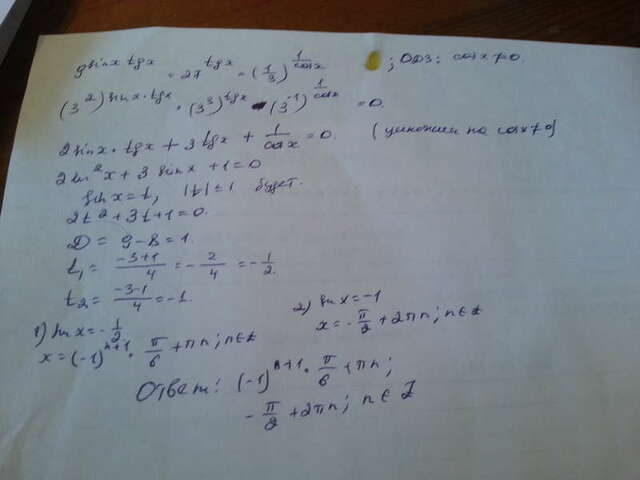 9^{sinx·tgx} · 27^{tgx} = (1/3)^{1/cosx} ; ОДЗ: cosx≠0.
(3^2)^{sinx·tgx} · (3^3)^{tgx} - (3^{-1})^{1/cosx} = 0.
2sinx·tgx + 3tgx + 1/cosx = 0. (умножим на cosx≠0)
2sin^2x + 3sinx + 1 = 0
sinx = t, |t| ≤ 1 будет.
2t^2 + 3t + 1 = 0.
D = 9 - 8 = 1.
t_1 = (-3+1)/4 = -2/4 = -1/2.
t_2 = (-3-1)/4 = -1.
1) sinx = -1/2
x = (-1)^{n+1} · π/6 + πn; n∈Z
2) sinx = -1
x = -π/2 + 2πn; n∈Z
Ответ: (-1)^{n+1} · π/6 + πn;
-π/2 + 2πn; n∈Z